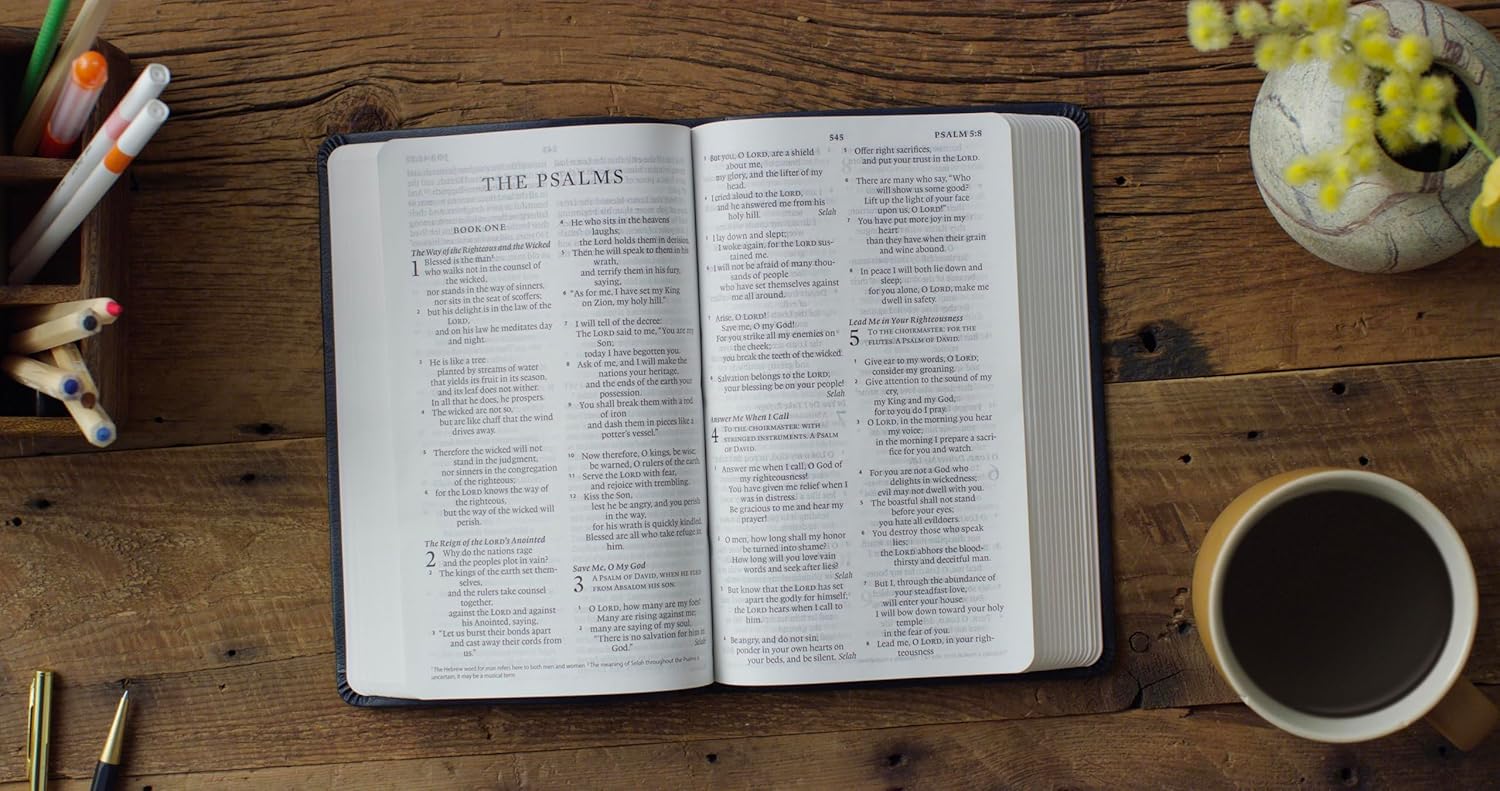 THE PSALMS
BOOK ONE
The Way of the Righteous and the Wicked
1 Blessed is the man¹
who walks not in the counsel of
the wicked,
nor stands in the way of sinners,
nor sits in the seat of scoffers;
2 but his delight is in the law of the
LORD,
and on his law he meditates day
and night.
3 He is like a tree
planted by streams of water
that yields its fruit in its season,
and its leaf does not wither.
In all that he does, he prospers.
4 The wicked are not so,
but are like chaff that the wind
drives away.
5 Therefore the wicked will not
stand in the judgment,
nor sinners in the congregation
of the righteous;
6 for the LORD knows the way of
the righteous,
but the way of the wicked will
perish.
The Reign of the LORD's Anointed
2 Why do the nations rage
and the peoples plot in vain?
2 The kings of the earth set them-
selves,
and the rulers take counsel
together,
against the LORD and against
his Anointed, saying,
3 "Let us burst their bonds apart
and cast away their cords from
us."
4 He who sits in the heavens
laughs;
the Lord holds them in derision.
5 Then he will speak to them in his
wrath,
and terrify them in his fury,
saying,
6 "As for me, I have set my King
on Zion, my holy hill."
7 I will tell of the decree:
The LORD said to me, "You are my
Son;
today I have begotten you.
8 Ask of me, and I will make the
nations your heritage,
and the ends of the earth your
possession.
9 You shall break them with a rod
of iron
and dash them in pieces like a
potter's vessel."
10 Now therefore, O kings, be wise;
be warned, O rulers of the earth.
11 Serve the LORD with fear,
and rejoice with trembling.
12 Kiss the Son,
lest he be angry, and you perish
in the way,
for his wrath is quickly kindled.
Blessed are all who take refuge in
him.
Save Me, O My God
3 A PSALM OF DAVID, WHEN HE FLED
FROM ABSALOM HIS SON.
1 O LORD, how many are my foes!
Many are rising against me;
2 many are saying of my soul,
"There is no salvation for him in
God." Selah
¹ The Hebrew word for man refers here to both men and women ² The meaning of Selah throughout the Psalms is
uncertain; it may be a musical term
545 PSALM 5:8
3 But you, O LORD, are a shield
about me,
my glory, and the lifter of my
head.
4 I cried aloud to the LORD,
and he answered me from his
holy hill. Selah
5 I lay down and slept;
I woke again, for the LORD sus-
tained me.
6 I will not be afraid of many thou-
sands of people
who have set themselves against
me all around.
7 Arise, O LORD!
Save me, O my God!
For you strike all my enemies on
the cheek;
you break the teeth of the wicked.
8 Salvation belongs to the LORD;
your blessing be on your people!
Selah
Answer Me When I Call
4 TO THE CHOIRMASTER: WITH
STRINGED INSTRUMENTS. A PSALM
OF DAVID.
1 Answer me when I call, O God of
my righteousness!
You have given me relief when I
was in distress.
Be gracious to me and hear my
prayer!
2 O men, how long shall my honor
be turned into shame?
How long will you love vain
words and seek after lies?
Selah
3 But know that the LORD has set
apart the godly for himself;
the LORD hears when I call to
him.
4 Be angry, and do not sin;
ponder in your own hearts on
your beds, and be silent. Selah
5 Offer right sacrifices,
and put your trust in the LORD.
6 There are many who say, "Who
will show us some good?
Lift up the light of your face
upon us, O LORD!"
7 You have put more joy in my
heart
than they have when their grain
and wine abound.
8 In peace I will both lie down and
sleep;
for you alone, O LORD, make me
dwell in safety.
Lead Me in Your Righteousness
5 TO THE CHOIRMASTER: FOR THE
FLUTES. A PSALM OF DAVID.
1 Give ear to my words, O LORD;
consider my groaning.
2 Give attention to the sound of my
cry,
my King and my God,
for to you do I pray.
3 O LORD, in the morning you hear
my voice;
in the morning I prepare a sacri-
fice for you and watch.
4 For you are not a God who
delights in wickedness;
evil may not dwell with you.
5 The boastful shall not stand
before your eyes;
you hate all evildoers.
6 You destroy those who speak
lies;
the LORD abhors the blood-
thirsty and deceitful man.
7 But I, through the abundance of
your steadfast love,
will enter your house.
I will bow down toward your holy
temple
in the fear of you.
8 Lead me, O LORD, in your righ-
teousness